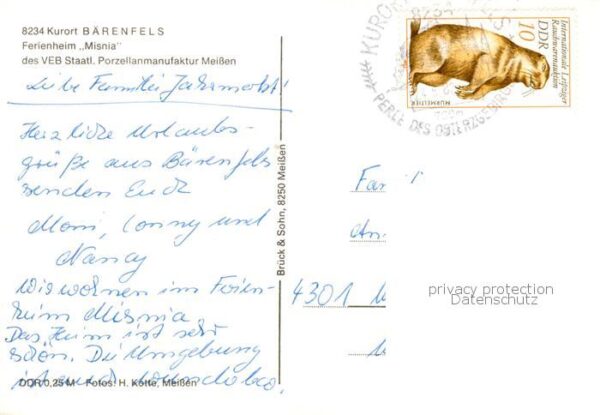 8234 Kurort BÄRENFELS
Ferienheim „Misnia"
des VEB Staatl. Porzellanmanufaktur Meißen
Liebe Familie Jahrmarkt!
Herzliche Urlaubs-
grüße aus Bärenfels
senden Euch
Moni, Conny und
Nancy
Wir wohnen im Ferien-
heim Misnia.
Das Heim ist sehr
schön. Die Umgebung
ist auch wunderbar.
DDR 0,25 M Fotos: H. Kotte, Meißen
Brück & Sohn, 8250 Meißen
8234
KURORT
PERLE DES OSTERZGEBIRGES
Internationale Leipziger
Rauchwarenauktion
DDR
10
MURMELTIER
Fa
An
4301
privacy protection
Datenschutz